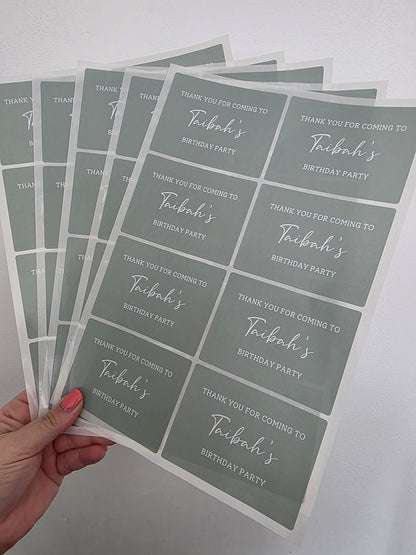 THANK YOU FOR COMING TO
Taibah's
BIRTHDAY PARTY
THANK YOU FOR COMING TO
Taibah's
BIRTHDAY PARTY
THANK YOU FOR COMING TO
Taibah's
BIRTHDAY PARTY
THANK YOU FOR COMING TO
Taibah's
BIRTHDAY PARTY
THANK YOU FOR COMING TO
Taibah's
BIRTHDAY PARTY
THANK YOU FOR COMING TO
Taibah's
BIRTHDAY PARTY
THANK YOU FOR COMING TO
Taibah's
BIRTHDAY PARTY
THANK YOU FOR COMING TO
Taibah's
BIRTHDAY PARTY